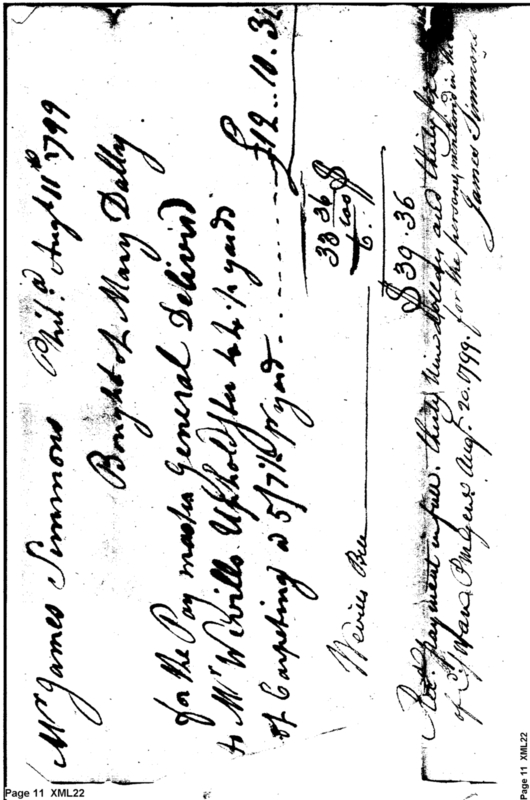 Mr James Simmons Phila. Augt 11th 1799
Bought of Mary Dalby
for the Pay master General Delivered
to Mr Wevills Upholdster 44 1/2 yards
of Carpeting a 5/7 1/2 pr yard - - - - - £12.. 10. 3 1/2
33 36 $
6 00
6.
Wevills Bill
$ 39.36
Recd payment in full. thirty nine dollars and thirty six
of Evan P M Genl Augt. 20. 1799. for the persons mentioned in the
James Simmons
Page 11 XML22
Page 11 XML22